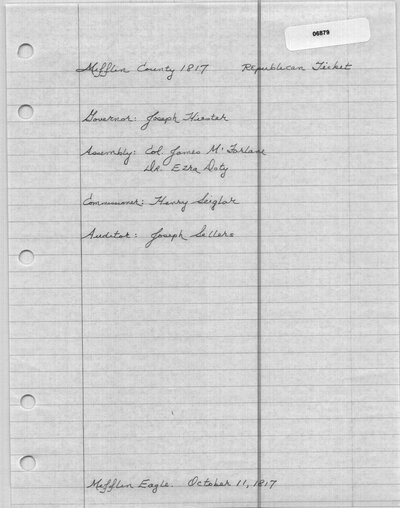 06879
Mifflin County 1817 Republican Ticket
Governor: Joseph Hiester
Assembly: Col. James McFarlane
Dr. Ezra Doty
Commissioner: Henry Seiglar
Auditor: Joseph Sellers
Mifflin Eagle. October 11, 1817